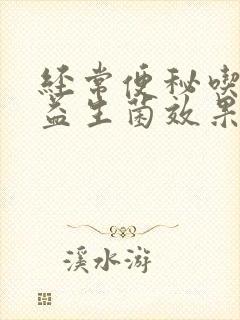 经常便秘喫
益生菌效果
溪水游